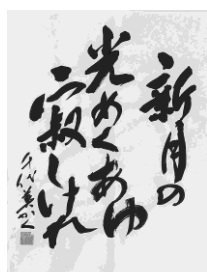 新月の
光めくあゆ
寂しけれ
千代美かく